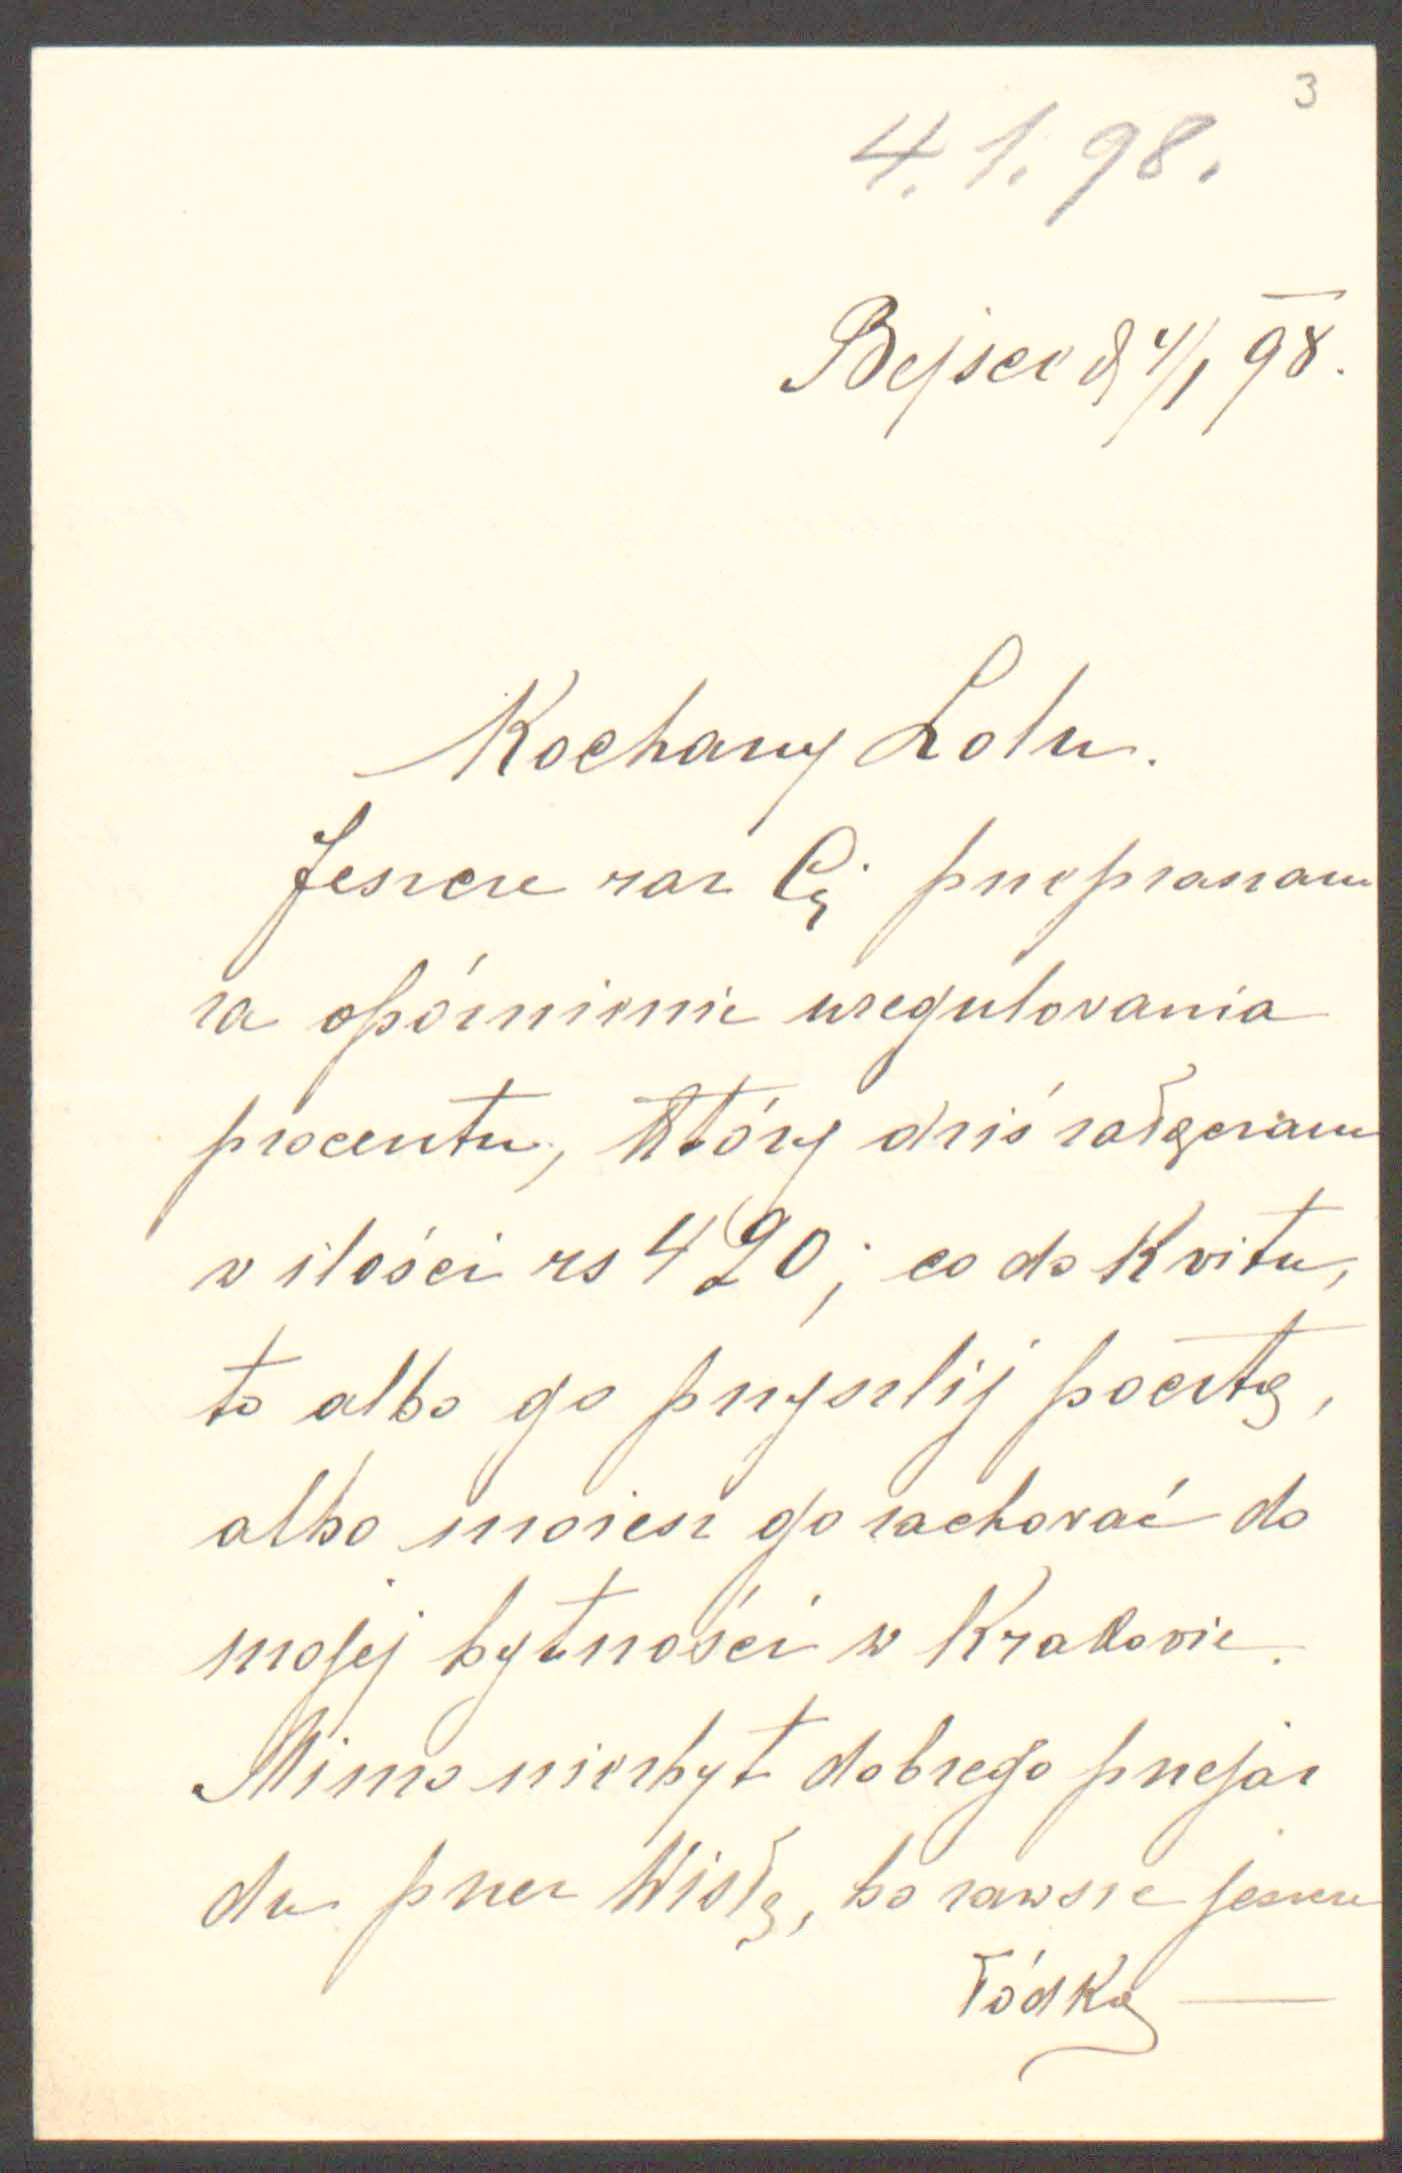 3
4. 1. 98.
Bejsce d 4/1 98.
Kochany Lolu.
Jeszcze raz Cię przepraszam
za opóźnienie uregulowania
procentu, który dziś załączam
w ilości rs 420; co do kwitu,
to albo go przyszlij pocztą,
albo możesz go zachować do
mojej bytności w Krakowie.
Mimo niezbyt dobrego przejaz
du przez Wisłę, bo zawsze jeszcze
łódką —